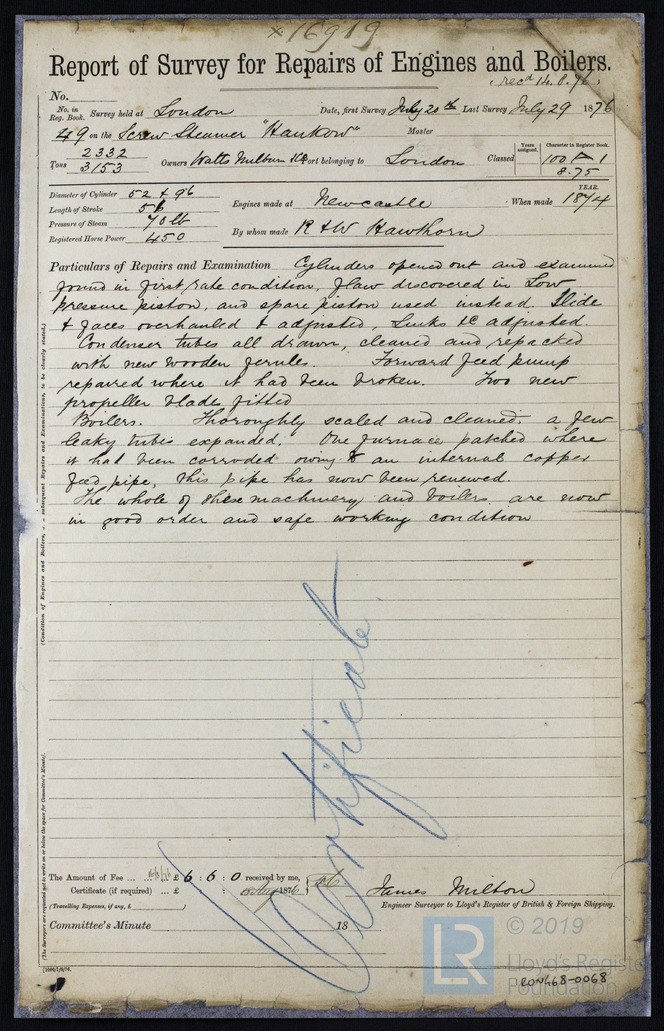 *16919
Report of Survey for Repairs of Engines and Boilers.
recd 14.8.76
No.
No. in Reg. Book. Survey held at London Date, first Survey July 20th Last Survey July 29 1876
49 on the Screw Steamer "Hankow" Master
Tons 2332 3153 Owners Watts Milburn &c Port belonging to London Classed Years assigned. Character in Register Book. 100 A 1 8.75
Diameter of Cylinder 52 & 96
Length of Stroke 56
Pressure of Steam 70 lb
Registered Horse Power 450
Engines made at Newcastle When made YEAR. 1874
By whom made R & W Hawthorn
Particulars of Repairs and Examination Cylinders opened out and examined
found in first rate condition, flaw discovered in Low
pressure piston, and spare piston used instead. Slide
& faces overhauled & adjusted, Links &c adjusted.
Condenser tubes all drawn, cleaned and repacked
with new wooden ferules. Forward feed pump
repaired where it had been broken. Two new
propeller blades fitted
Boilers. Thoroughly scaled and cleaned, a few
leaky tubes expanded. One furnace patched where
it had been corroded owing to an internal copper
feed pipe, this pipe has now been renewed.
The whole of these machinery and boilers are now
in good order and safe working condition
(Condition of Engines and Boilers, subsequent Repairs and Examinations, to be clearly stated.)
(The Surveyors are requested not to write on or below the space for Committee's Minute).
Certificate
The Amount of Fee ... £ 6 : 6 : 0 received by me,
Certificate (if required) ... £ : : 1876
(Travelling Expenses, if any, £ )
James Milton
Engineer Surveyor to Lloyd's Register of British & Foreign Shipping.
Committee's Minute 18
LR
© 2019
Lloyd's Register
Foundation
RON468-0068